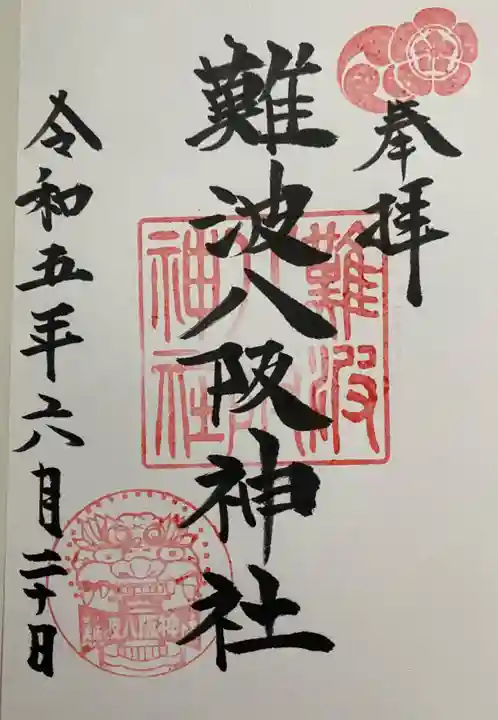 奉拝
難波八阪神社
難波
八阪
神社
令和五年六月二十日
難波八阪神社